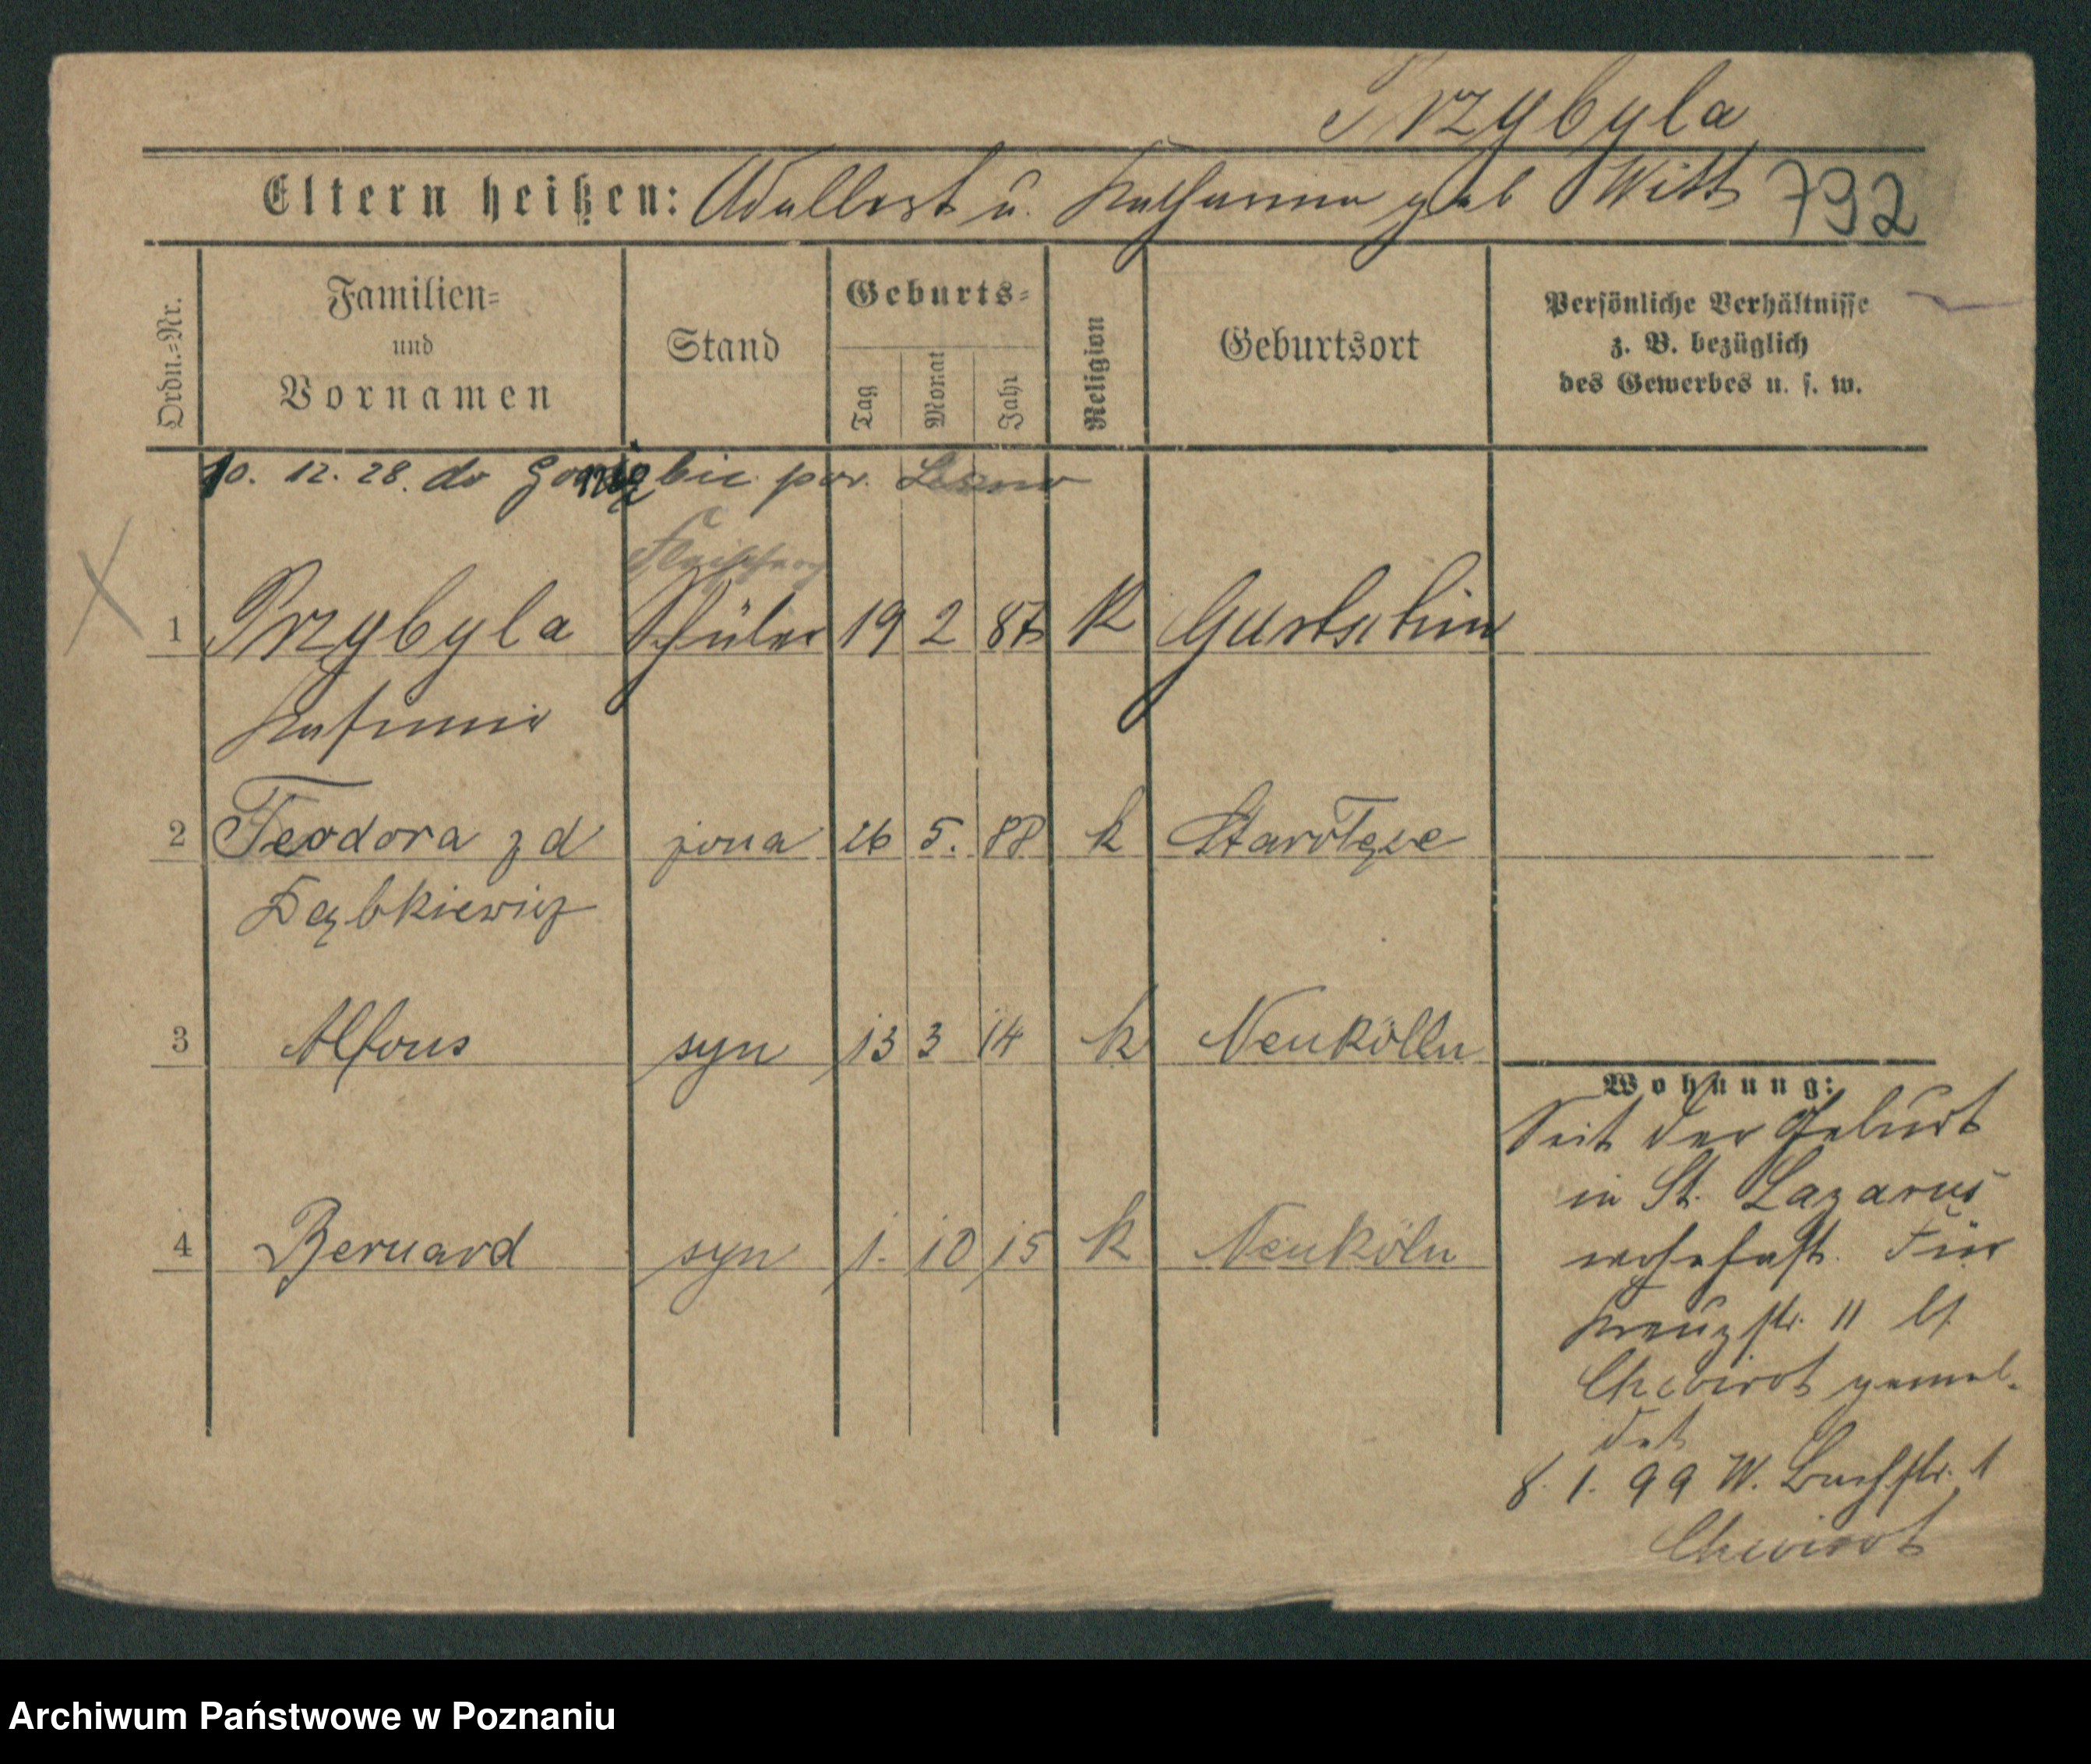 Przybyla
Eltern heißen: Adalbert u. Katharina geb Witt 792
Ordn.=Nr. Familien= und Vornamen Stand Geburts= Tag Monat Jahr Religion Geburtsort Persönliche Verhältnisse z. B. bezüglich des Gewerbes u. s. w.
10. 12. 28. do pow. Leszno
Fleischer
1 Przybyla Schüler 19 2 87 K Gurtschin
Kasimir
2 Teodora z d żona 26 5. 88 k Starołęce
Dąbkiewicz
3 Alfons syn 13 3 14 k Neukölln
4 Bernard syn 1. 10 15 k Neuköln
Wohnung:
Seit der Geburt
in St. Lazarus
wohnhaft. Für
Kreuzstr. 11 bei
Chwirot gemel-
det
8. 1. 99 W. Bachstr. 1
Chwirot
Archiwum Państwowe w Poznaniu